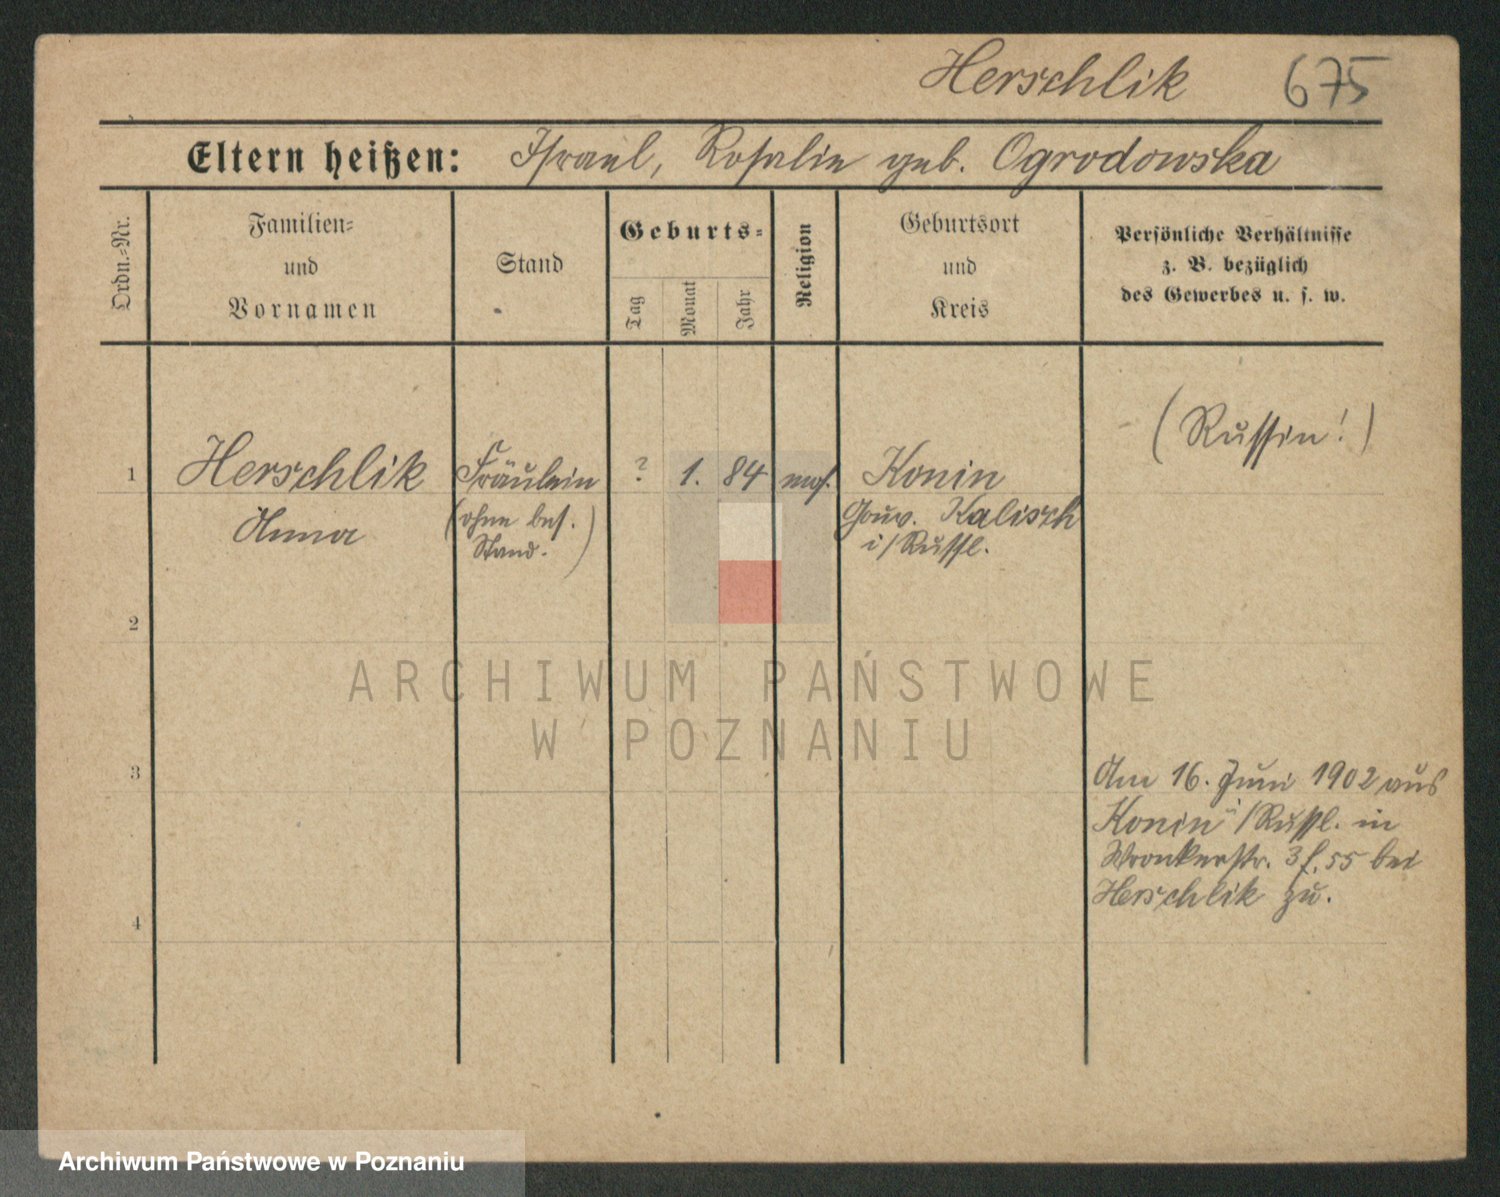 Herschlik 675
Eltern heißen: Israel, Rosalie geb. Ogrodowska
Ordn.-Nr.
Familien-
und
Vornamen
Stand
Geburts-
Tag
Monat
Jahr
Religion
Geburtsort
und
Kreis
Persönliche Verhältnisse
z. B. bezüglich
des Gewerbes u. s. w.
(Russin!)
1 Herschlik Fräulein ? 1. 84 mos. Konin
(ohne bes. Gouv. Kalisch
Stand.) i/Russl.
2
ARCHIWUM PAŃSTWOWE
W POZNANIU
3
Am 16. Juni 1902 aus
Konin i/Russl. in
Wronkerstr. 3 f. 55 bei
Herschlik zu.
4
Archiwum Państwowe w Poznaniu